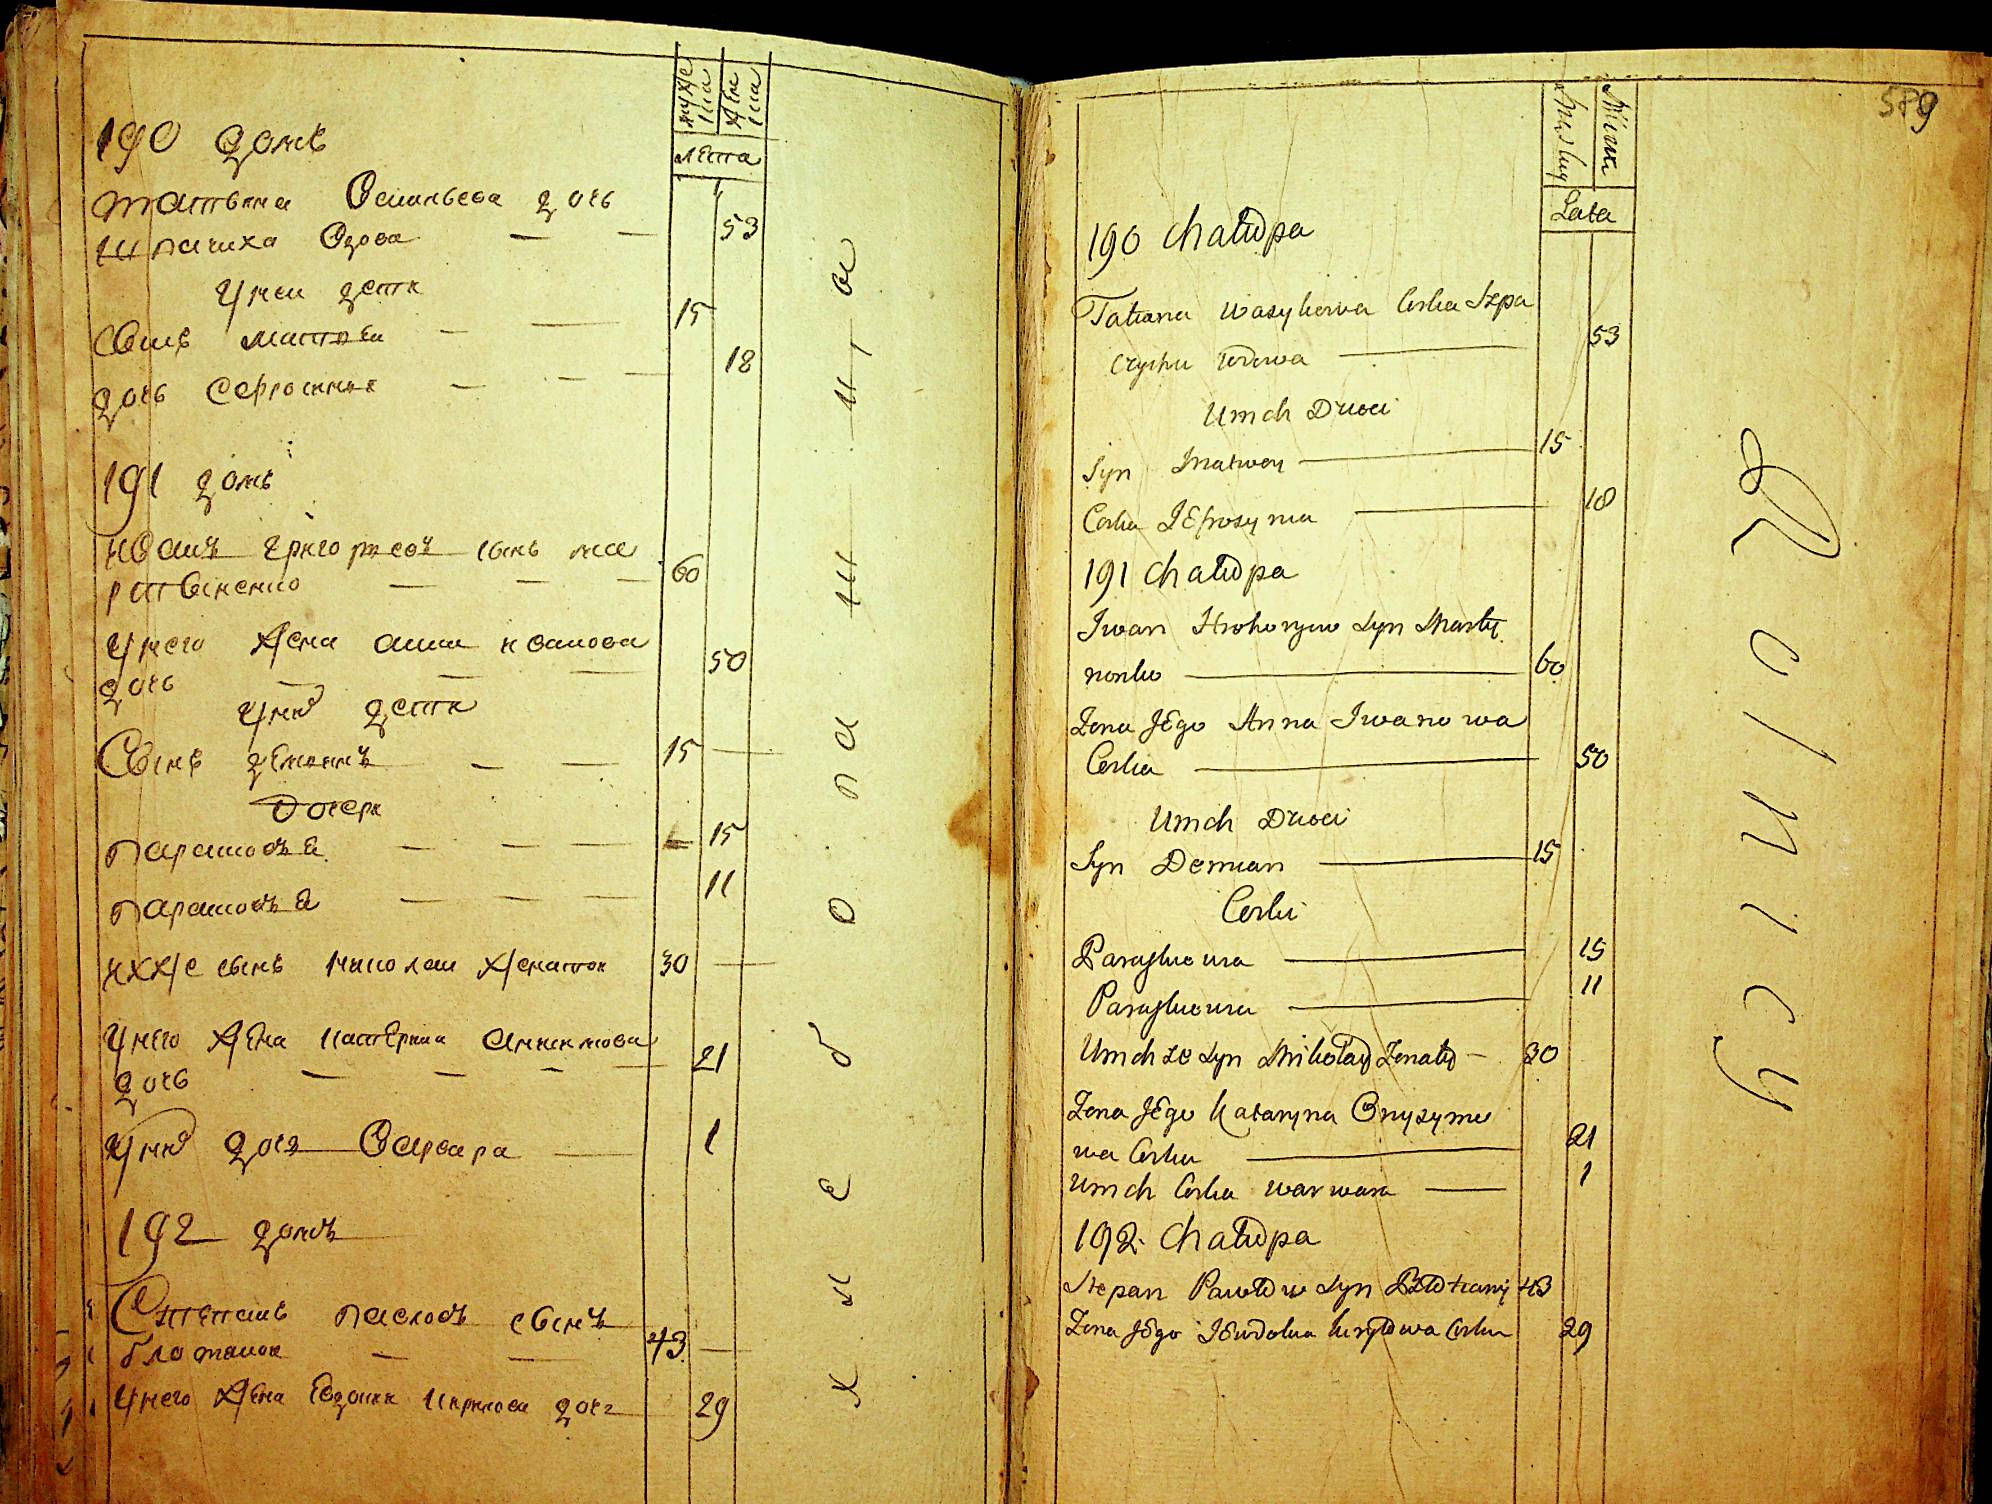 мужеска
женска
лета
190 домъ
татьяна Васильева дочь
шпачиха Вдова 53
У неи дети
Сынъ матвеи 15
дочь Сефросиния 18
191 домъ
иванъ григорьевъ сынъ ма
ртыненко 60
У него жена анна иванова
дочь 50
У них дети
Сынъ демянъ 15
Дочери
парасковѣя 15
парасковѣя 11
ихже сынъ николаи женатои 30
У него жена катерина анисимова
дочь 21
У них дочь Варвара 1
192 домъ
Степанъ павловъ сынъ
43
У него жена Евдокия кирилова дочь 29
Х л е б о п а ш ц ы
579
Męskiy
Żenska
Lata
190 Chałupa
Tatiana Wasylowa Corka Szpa
czycha Wdowa 53
Umch Dzieci
Syn Matwey 15
Corka JEfrosynia 18
191 Chałupa
Iwan Hrehoryiw Syn Marty
nenko 60
Zona JEgo Anna Iwanowa
Corka 50
Umch Dzieci
Syn Demian 15
Corki
Paraskowia 15
Paraskowia 11
Umch ze Syn Mikołay Zonaty 30
Zona JEgo Kataryna Onyzymo
wa Corka 21
Umch Corka Warwara 1
192 Chałupa
Stepan Pawłow Syn 43
Zona JEgo JEwdokia Kryłowa Corka 29
R o l n i c y